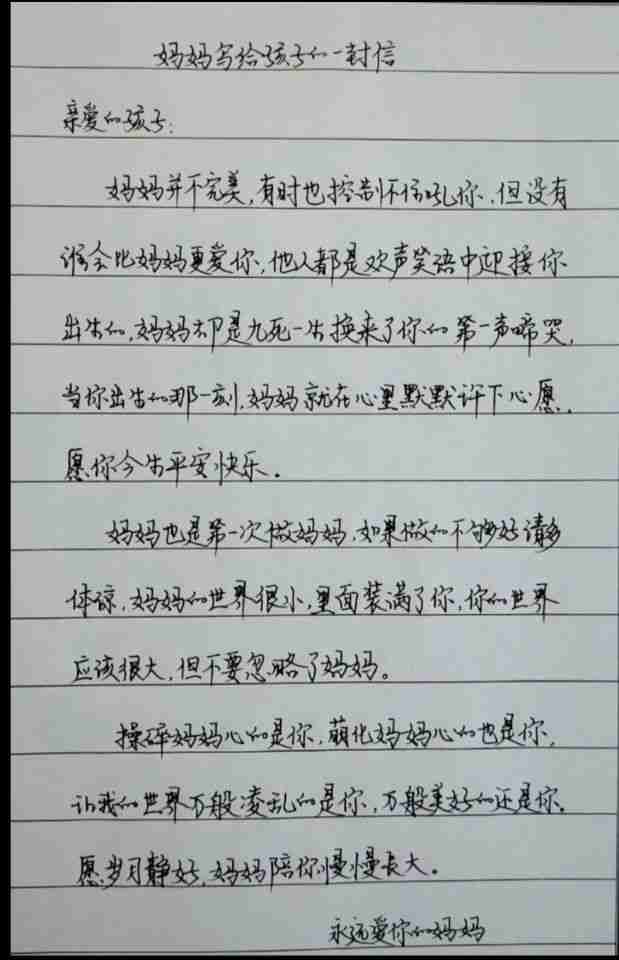 妈妈写给孩子的一封信
亲爱的孩子:
妈妈并不完美,有时也控制不住吼你,但没有
谁会比妈妈更爱你,他人都是欢声笑语中迎接你
出生的,妈妈却是九死一生换来了你的第一声啼哭,
当你出生的那一刻,妈妈就在心里默默许下心愿,
愿你今生平安快乐。
妈妈也是第一次做妈妈,如果做的不够好请多
体谅,妈妈的世界很小,里面装满了你,你的世界
应该很大,但不要忽略了妈妈。
操碎妈妈心的是你,萌化妈妈心的也是你,
让我的世界万般凌乱的是你,万般美好的还是你。
愿岁月静好,妈妈陪你慢慢长大。
永远爱你的妈妈